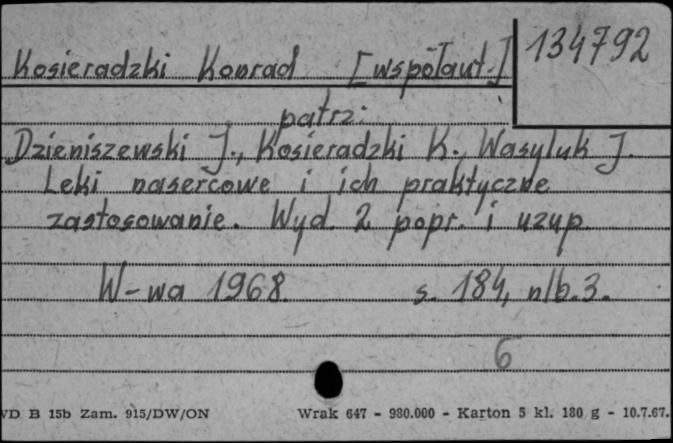 Kosieradzki Konrad [współaut.]
134792
patrz:
Dzieniszewski J., Kosieradzki K., Wasyluk J.
Leki nasercowe i ich praktyczne
zastosowanie. Wyd. 2 popr. i uzup.
W-wa 1968. s. 184, nlb. 3.
6
VD B 15b Zam. 915/DW/ON Wrak 647 - 980.000 - Karton 5 kl. 180 g - 10.7.67.